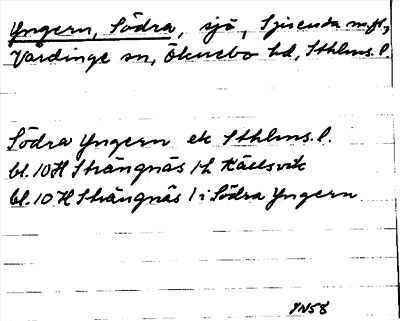 Yngern, Södra, sjö, Sjisenda m.fl,
Vårdinge sn, Öknebo hd, Sthlms. l.
Södra Yngern ek Sthlms. l.
bl. 10H Strängnäs 1h Kaelsvik
bl. 10 H Strängnäs 1 i Södra Yngern
YN58